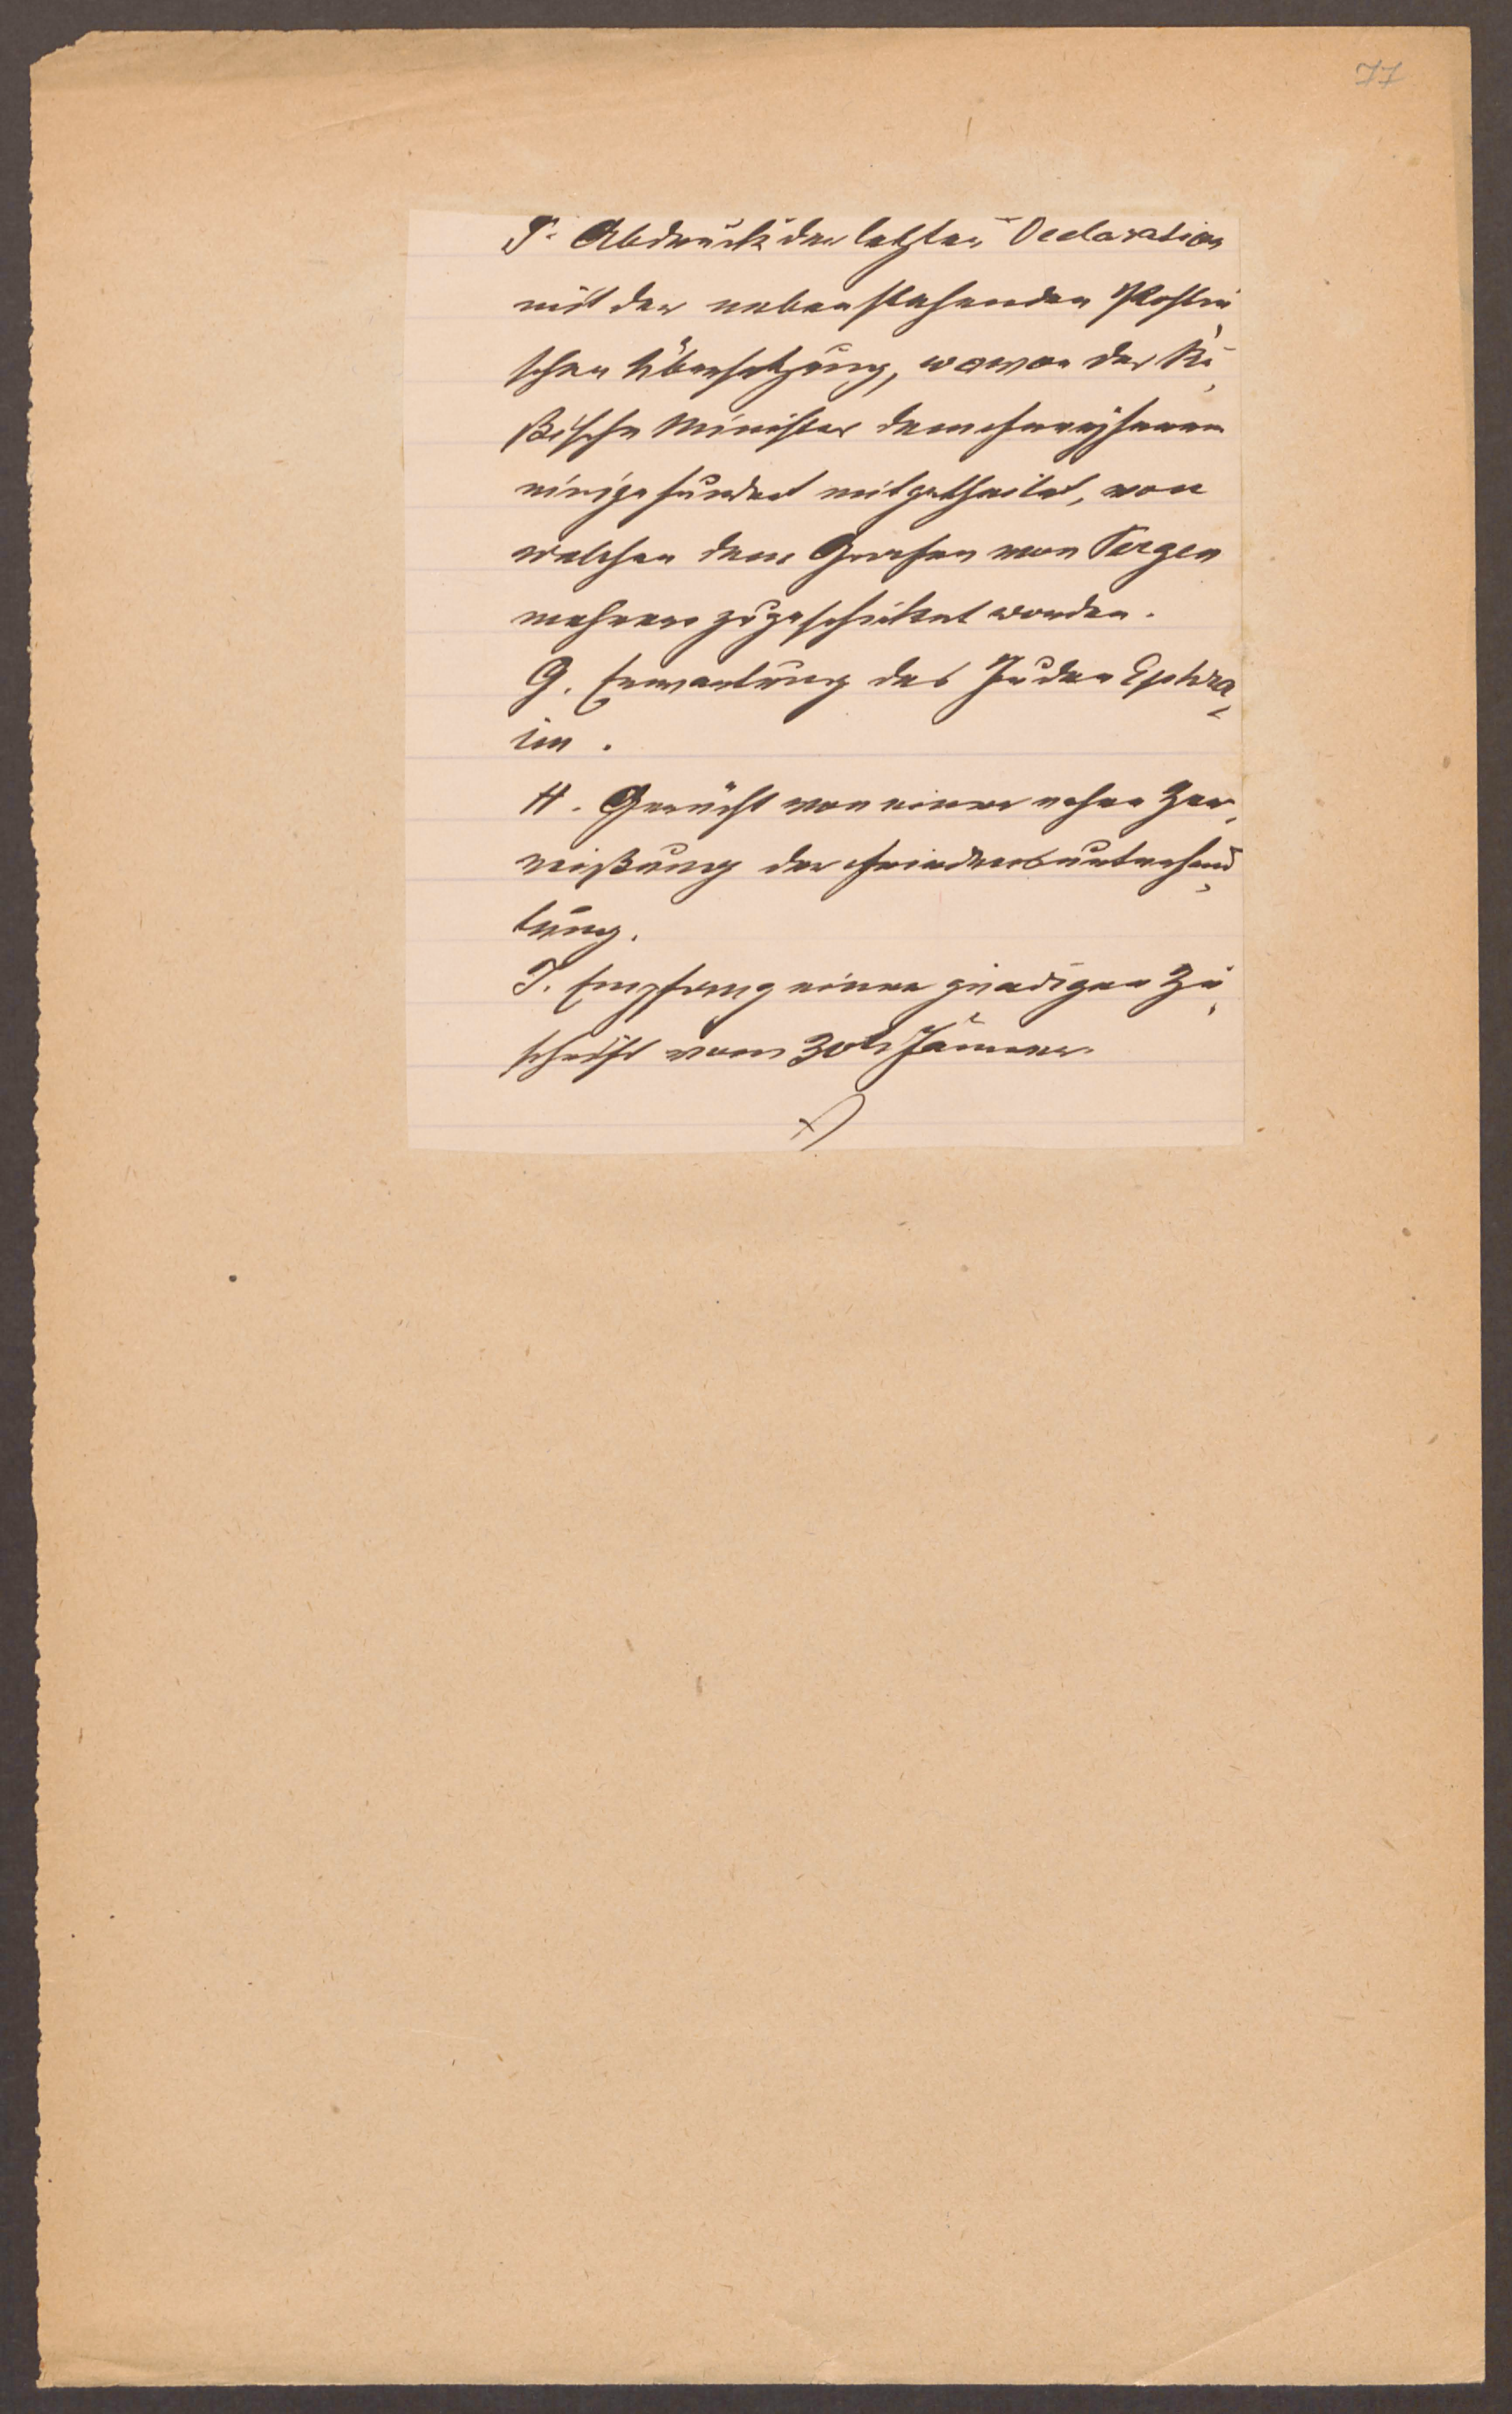 77
F. Abdruck der letzten Declaration
mit der nebenstehenden Pohlni
schen Übersetzung, wovon der Ru
ßische Minister dem
einige hundert mitgetheilet, von
welchen dem Grafen von Pergen
mehrere zugeschicket worden.
G. Erwartung des Juden Ephra
im.
H. Gerücht von einer nahen Zer
reißung der Friedensunterhand
lung.
I. Empfang einer gnädigen Zu
schrift vom 30t Jänner.